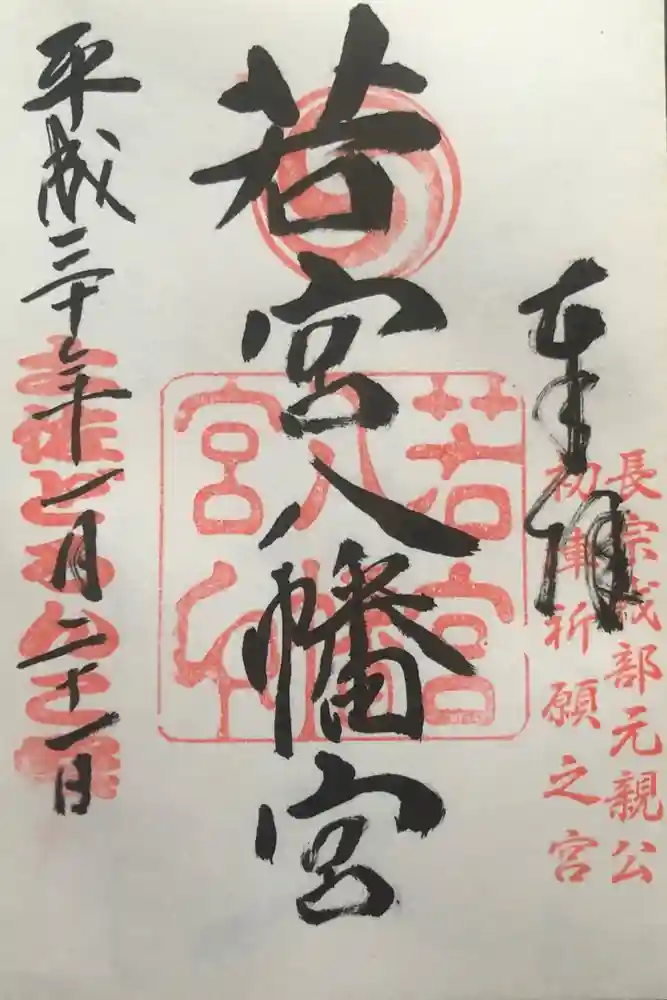 奉拝
長宗我部元親公
初陣祈願之宮
若宮八幡宮
若宮
八幡
宮印
平成三十年十一月二十一日